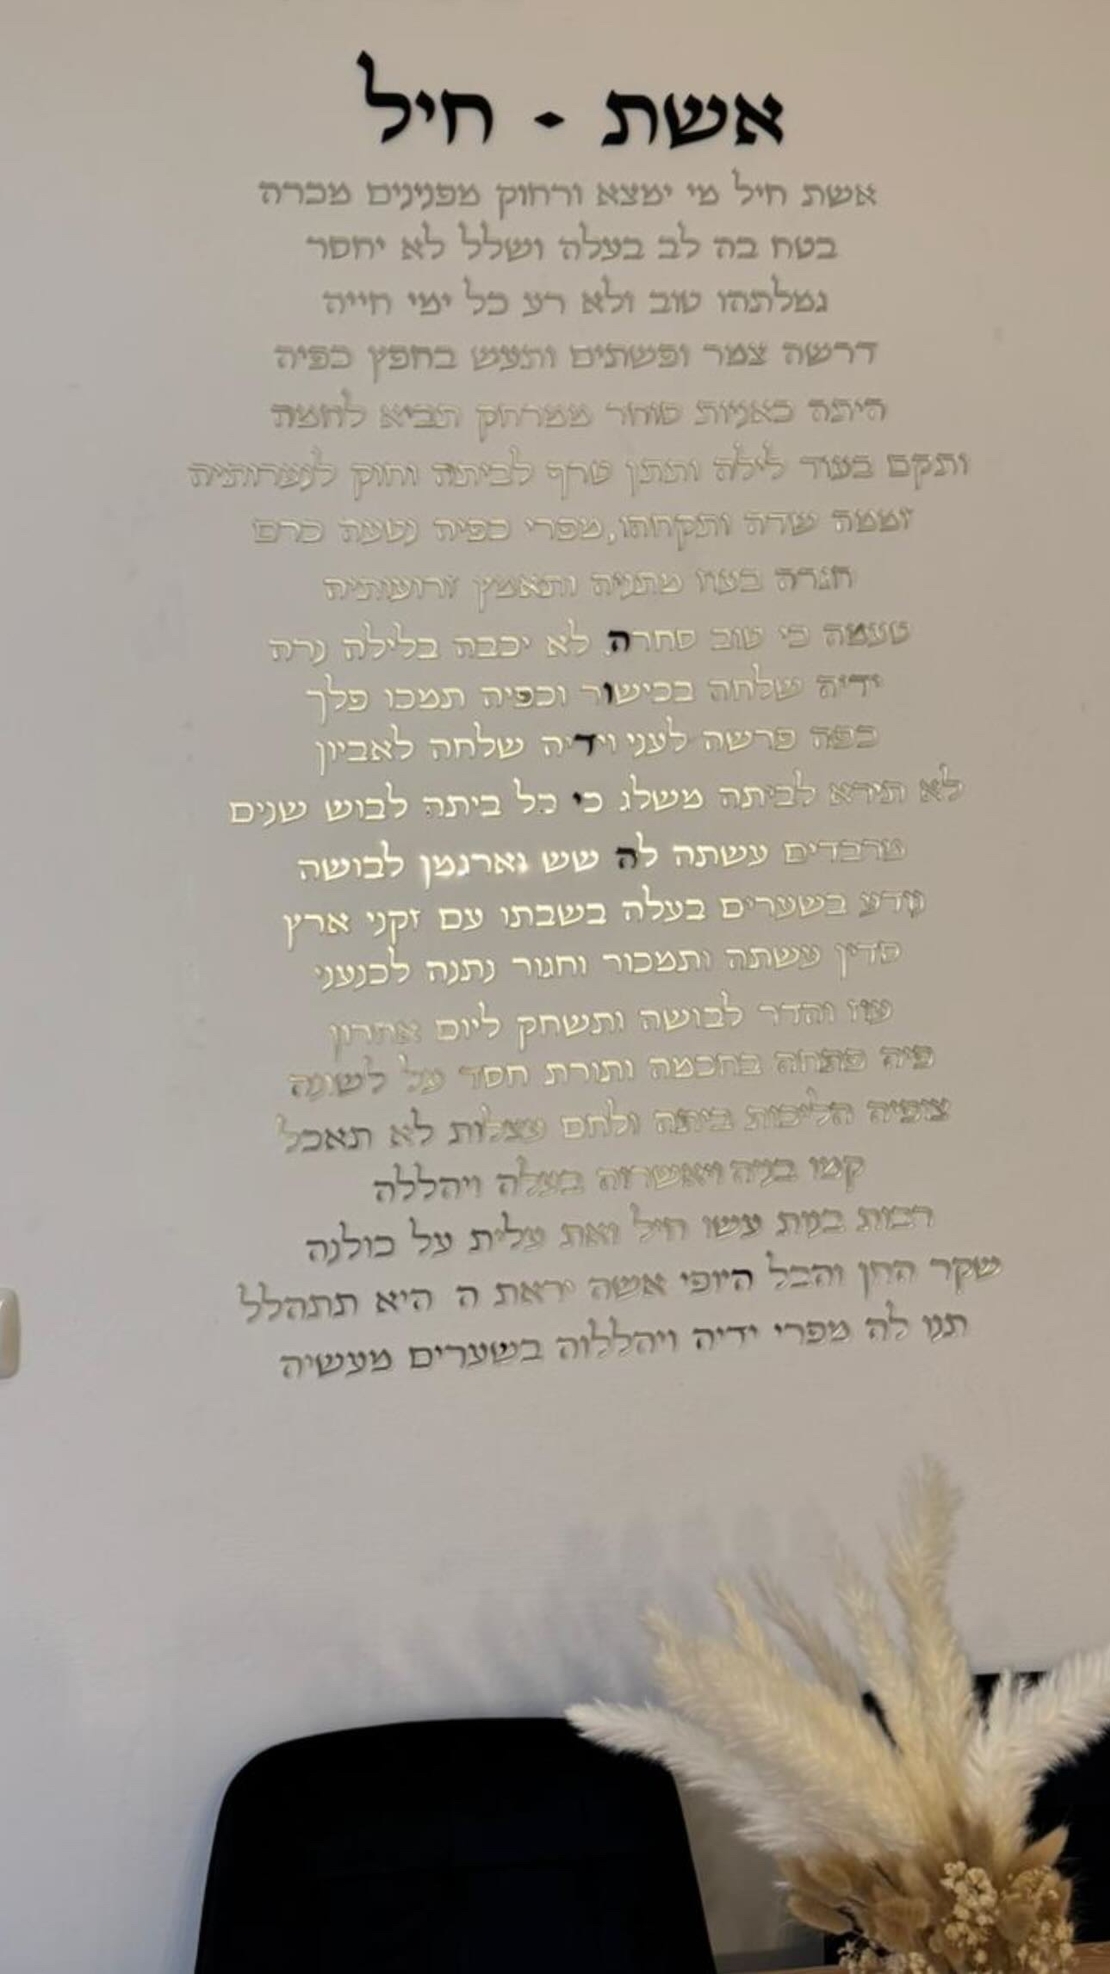 אשת - חיל
אשת חיל מי ימצא ורחוק מפנינים מכרה
בטח בה לב בעלה ושלל לא יחסר
גמלתהו טוב ולא רע כל ימי חייה
דרשה צמר ופשתים ותעש בחפץ כפיה
היתה כאניות סוחר ממרחק תביא לחמה
ותקם בעוד לילה ותתן טרף לביתה וחוק לנערותיה
זממה שדה ותקחהו,מפרי כפיה נטעה כרם
חגרה בעוז מתניה ותאמץ זרועותיה
טעמה כי טוב סחרה לא יכבה בלילה נרה
ידיה שלחה בכישור וכפיה תמכו פלך
כפה פרשה לעני וידיה שלחה לאביון
לא תירא לביתה משלג כי כל ביתה לבוש שנים
מרבדים עשתה לה שש וארגמן לבושה
נודע בשערים בעלה בשבתו עם זקני ארץ
סדין עשתה ותמכור וחגור נתנה לכנעני
עוז והדר לבושה ותשחק ליום אחרון
פיה פתחה בחכמה ותורת חסד על לשונה
צופיה הליכות ביתה ולחם עצלות לא תאכל
קמו בניה ויאשרוה בעלה ויהללה
רבות בנות עשו חיל ואת עלית על כולנה
שקר החן והבל היופי אשה יראת ה היא תתהלל
תנו לה מפרי ידיה ויהללוה בשערים מעשיה